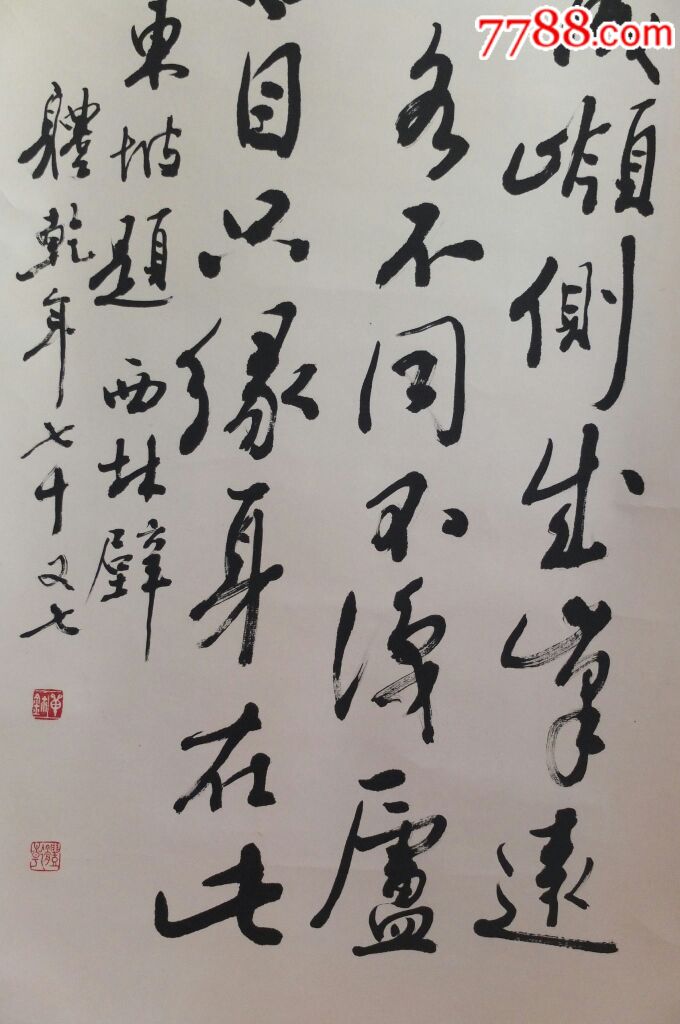 7788.com
嶺側成峯遠
各不同不識廬
目只緣身在此
東坡題西林壁
軆乾年七十又七